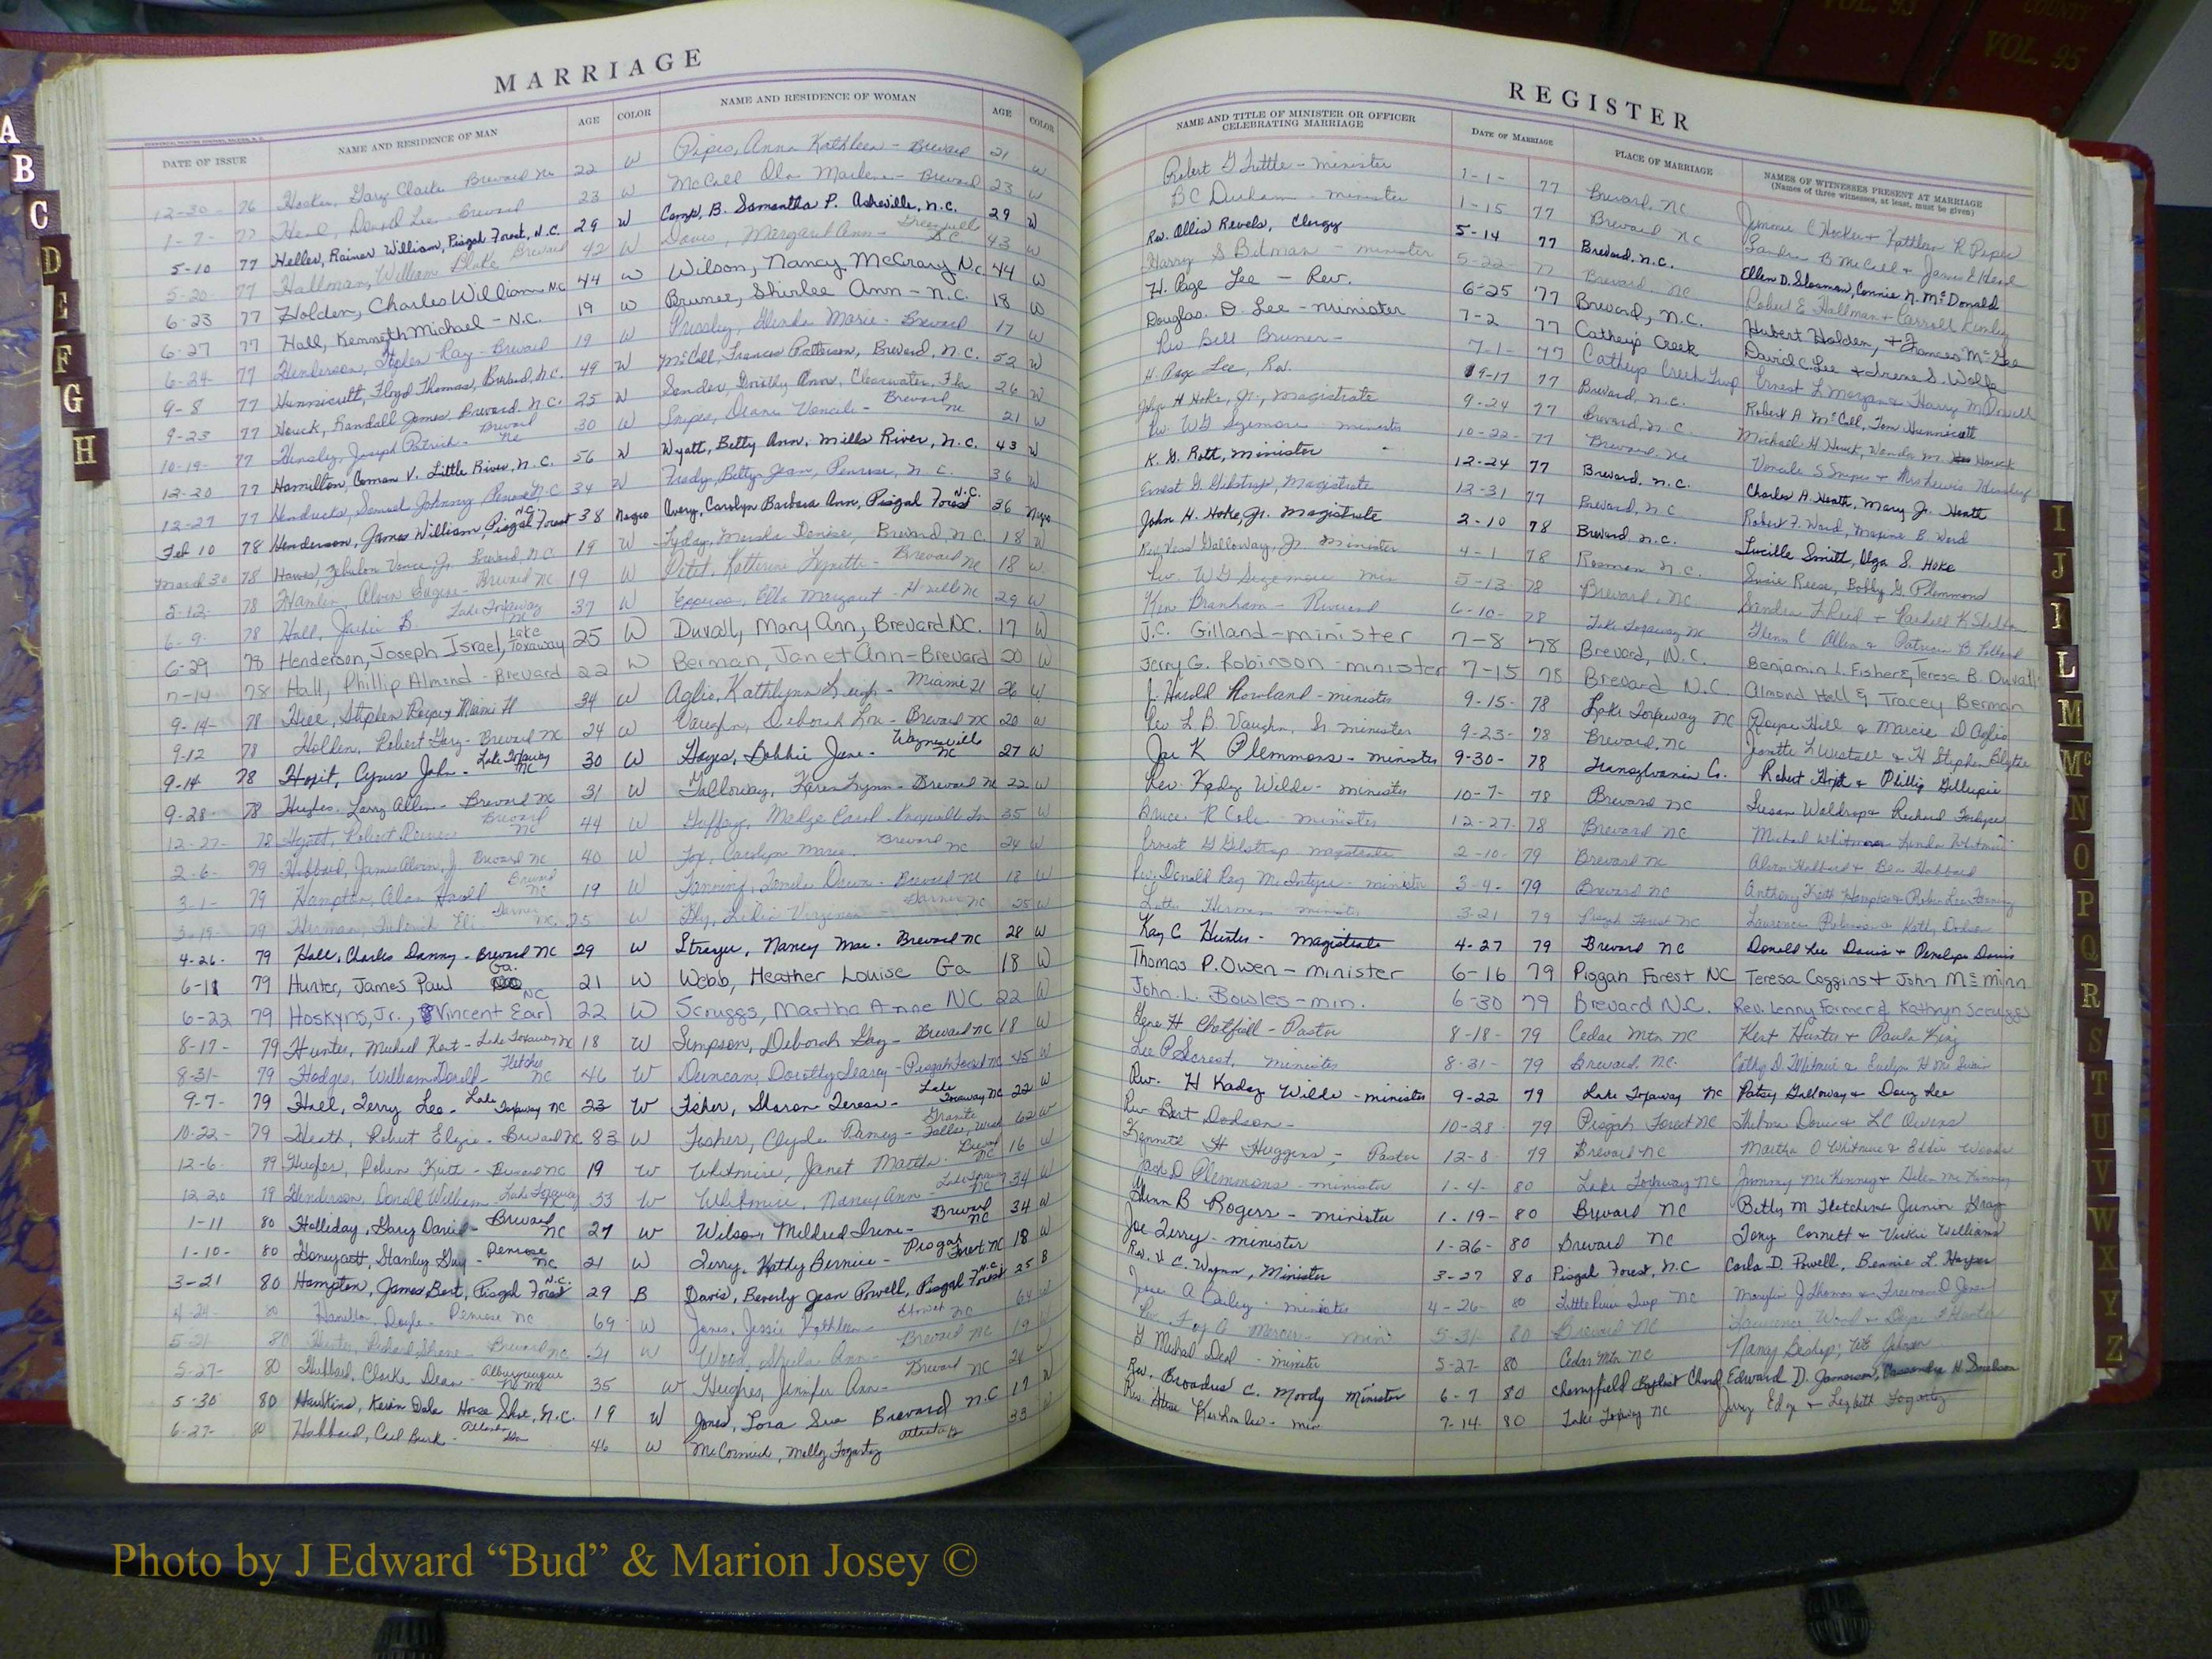 MARRIAGE
DATE OF ISSUE NAME AND RESIDENCE OF MAN AGE COLOR NAME AND RESIDENCE OF WOMAN AGE COLOR
12-30- 76 Hooker, Gary Clarke Brevard Nc 22 W Pipes, Anna Kathleen - Brevard 21 W
1-7- 77 David Lee - Brevard 23 W McCall Ola Marlena - Brevard 23 W
5-10 77 Heller, Rainer William, Pisgah Forest, N.C. 29 W Camp, B. Samantha P. Asheville, N.C. 29 W
5-20- 77 Hallman, William Blake Brevard 42 W Davis, Margaret Ann - Greenville 43 W
6-23 77 Holden, Charles William NC 44 W Wilson, Nancy McCrary N.C. 44 W
6-27 77 Hall, Kenneth Michael - N.C. 19 W Bruner, Shirlee Ann - N.C. 18 W
6-24- 77 Henderson, Stephen Ray - Brevard 19 W Pressley, Glenda Marie - Brevard 17 W
9-8 77 Hunnicutt, Floyd Thomas, Brevard, N.C. 49 W McCall, Frances Patterson, Brevard, N.C. 52 W
9-23 77 Houck, Randall James, Brevard, N.C. 25 W Sender, Dorothy Ann, Clearwater, Fla 26 W
10-19- 77 Hensley, Joseph Patrick - Brevard Nc 30 W Snipes, Diana Vencile - Brevard Nc 21 W
12-20 77 Hamilton, Coman V. Little River, N.C. 56 W Wyatt, Betty Ann, Mills River, N.C. 43 W
12-27 77 Hendricks, Samuel Johnny Penrose N.C. 34 W Frady, Betty Jean, Penrose, N.C. 36 W
Feb 10 78 Henderson, James William, Pisgah Forest N.C. 38 Negro Avery, Carolyn Barbara Ann, Pisgah Forest N.C. 36 Negro
March 30 78 Hawes, Zebulon Vance Jr. Brevard, N.C. 19 W Lyday, Marsha Denise, Brevard, N.C. 18 W
5-12- 78 Hamlin Alvin Eugene - Brevard NC 19 W Petit, Katherine Lynette - Brevard NC 18 W
6-9- 78 Hall, Jackie B. Lake Toxaway NC 37 W Ella Margaret 29 W
6-29 78 Henderson, Joseph Israel, Lake Toxaway 25 W Duvall, Mary Ann, Brevard N.C. 17 W
7-14 78 Hall, Phillip Almond - Brevard 22 W Berman, Janet Ann - Brevard 20 W
9-14- 78 Hill, Stephen Roper Miami Fl 34 W Aglio, Kathlynn Leigh - Miami Fl 26 W
9-12 78 Holden, Robert Gary - Brevard NC 24 W Vaughn, Deborah Lou - Brevard NC 20 W
9-14 78 Hoxit, Cyrus John - Lake Toxaway NC 30 W Hayes, Bobbie Jane - Waynesville NC 27 W
9-28- 78 Hughes, Larry Allen - Brevard NC 31 W Galloway, Karen Lynn - Brevard NC 22 W
12-27- 78 Hyatt, Robert Brevard NC 44 W Guffey, Madge Carol - Knoxville Tn 35 W
2-6- 79 Hubbard, James Alvin, Jr. Brevard NC 40 W Fox, Carolyn Marie. Brevard NC 24 W
3-1- 79 Hampton, Alan Harold Brevard NC 19 W Fanning, Brevard NC 18 W
3-19- 79 Herman, Frederick Eli 25 W Fly, Lilia Virginia 25 W
4-26- 79 Hall, Charles Danny - Brevard NC 29 W Strayer, Nancy Mae - Brevard NC 28 W
6-11 79 Hunter, James Paul Ga. 21 W Webb, Heather Louise Ga 18 W
6-22 79 Hoskyns, Jr., Vincent Earl NC 22 W Scruggs, Martha Anne NC 22 W
8-17- 79 Hunter, Michael Kent - Lake Toxaway NC 18 W Simpson, Deborah Gay - Brevard NC 18 W
8-31- 79 Hodges, William Donald - Fletcher NC 46 W Duncan, Dorothy Searcy - Pisgah Forest NC 45 W
9-7- 79 Hall, Terry Leo - Lake Toxaway NC 23 W Fisher, Sharon Teresa - Lake Toxaway NC 22 W
10-22- 79 Heath, Robert Elzie - Brevard NC 83 W Fisher, Clyde Ramey - Granite Falls, Wash 62 W
12-6- 79 Hughes, Robin Kirt - Brevard NC 19 W Whitmire, Janet Martha - Brevard NC 16 W
12-20 79 Henderson, Donald William Lake Toxaway NC 33 W Whitmire, Nancy Ann - Lake Toxaway NC 34 W
1-11 80 Holliday, Gary David - Brevard NC 27 W Wilson, Mildred Irene - Brevard NC 34 W
1-10- 80 Honeycutt, Stanley Guy - Penrose NC 21 W Terry, Kathy Bernice - Pisgah Forest NC 18 W
3-21 80 Hampton, James Bert, Pisgah Forest N.C. 29 B Davis, Beverly Jean Powell, Pisgah Forest N.C. 25 B
4-24- 80 Hamilton, Doyle - Penrose NC 69 W Jones, Jessie Kathleen - Etowah NC 64 W
5-21 80 Hunter, Richard Shane - Brevard NC 21 W Wood, Sheila Ann - Brevard NC 19 W
5-27- 80 Hubbard, Clarke Dean - Albuquerque N. M. 35 W Hughes, Jennifer Ann - Brevard NC 24 W
5-30 80 Hawkins, Kevin Dale Horse Shoe, N.C. 19 W Jones, Lora Sue Brevard N.C 17 W
6-27- 80 Hubbard, Carl Burk - Atlanta Ga 46 W McCormick, Molly Fogarty Atlanta Ga 33 W
REGISTER
NAME AND TITLE OF MINISTER OR OFFICER CELEBRATING MARRIAGE DATE OF MARRIAGE PLACE OF MARRIAGE NAMES OF WITNESSES PRESENT AT MARRIAGE
(Names of three witnesses, at least, must be given)
Robert G Tuttle - minister 1-1- 77 Brevard, NC Jimmie C Hooker + Kathleen R Pipes
B C Durham - minister 1-15 77 Brevard NC Sandra B McCall + James E
Rev. Ollis Revels, Clergy 5-14 77 Brevard. N.C. Ellen D. Sloaman, Connie N. McDonald
Harry S Bitman - minister 5-22- 77 Brevard, NC Robert E Hallman + Carroll Kimley
H. Page Lee - Rev. 6-25 '77 Brevard, N.C. Hubert Holden, + Frances McGee
Douglas. D. Lee - minister 7-2 77 Catheys Creek David C. Lee + Irene S. Wolfe
Rev Bill Bruner - 7-1- 77 Catheys Creek Twp Ernest L Morgan + Harry McDowell
H. Page Lee, Rev. 9-17 77 Brevard, N.C. Robert A. McCall, Tom Hunnicutt
John H Hoke, Jr., Magistrate 9-24 77 Brevard, N.C. Michael H Houck, Wanda M. Houck
Rev. W G Sizemore minister 10-22- 77 Brevard, NC Vencile S Snipes + Mrs Lewis Hensley
K. G. Rott, Minister 12-24 77 Brevard, N.C. Charles A. Heath, Mary Jr. Heath
Ernest G. Gilstrap, Magistrate 12-31 77 Brevard, N.C Robert F. Ward, Maxine B. Ward
John H. Hoke, Jr. Magistrate 2-10 78 Brevard N.C. Lucille Smith, Olga S. Hoke
Rev. Galloway, Jr. Minister 4-1 78 Rosman N.C. Susie Reese, Bobby G. Plemmond
Rev. W G Sizemore Min 5-13- 78 Brevard, NC Sandra L Reid + Randall K Shelton
Ken Branham - Reverend 6-10- 78 Lake Toxaway NC Glenn C Allen + Patricia B Pollard
J.C. Gilland - minister 7-8 78 Brevard, N.C. Benjamin L. Fisher & Teresa B. Duvall
Jerry G. Robinson - minister 7-15 78 Brevard N.C. Almond Hall & Tracey Berman
J. Harold Rowland - minister 9-15- 78 Lake Toxaway NC Roper Hill & Marcie D Aglio
Rev L. B. Vaughn, Sr minister 9-23- 78 Brevard, NC Jonette L Westall & H Stephen Blythe
Joe K Plemmons - minister 9-30- 78 Transylvania Co. Robert Hoxit & Phillip Gillespie
Rev. Kadez Wilde - minister 10-7- 78 Brevard NC Susan Waldrop & Richard
Bruce R Cole - minister 12-27- 78 Brevard NC Michael Whitmire Linda Whitmire
Ernest G Gilstrap magistrate 2-10- 79 Brevard NC Alvin Hubbard + Ben Hubbard
Rev. Donald Ray McIntyre - minister 3-4- 79 Brevard NC Anthony Keith Hampton & Robin Lee Fanning
Luther Herman minister 3-21 79 Pisgah Forest NC Laurence & Kathy Dodson
Kay C Hunter - magistrate 4-27 79 Brevard NC Donald Lee Davis & Penelope Davis
Thomas P. Owen - minister 6-16 79 Pisgah Forest NC Teresa Coggins + John McMinn
John L. Bowles - min. 6-30 79 Brevard N.C. Rev. Lenny Farmer & Kathryn Scruggs
Gene H Chatfield - Pastor 8-18- 79 Cedar Mtn NC Kent Hunter & Paula King
Lee P Secrest, minister 8-31- 79 Brevard, NC. Cathy D Whitmire & Evelyn H
Rev. H Kadez Wilde - minister 9-22 79 Lake Toxaway NC Patsy Galloway + Doug Lee
Rev Bert Dodson - 10-28- 79 Pisgah Forest NC Thelma Davis & L C Owens
Kenneth H Huggins - Pastor 12-8- 79 Brevard NC Martha O Whitmire & Eddie Woods
Jack D Plemmons - minister 1-4- 80 Lake Toxaway NC Jimmy McKinney + Helen McKinney
Glenn B Rogers - minister 1-19- 80 Brevard NC Betty M Fletcher + Junior Gray
Joe Terry - minister 1-26- 80 Brevard NC Tony Cornett & Vickie Williams
Rev. V C. Wynn, Minister 3-27 80 Pisgah Forest, N.C Carla D. Powell, Bennie L. Harper
Jesse A Bailey - minister 4-26- 80 Little River Twp NC Marylin J Thomas & Freeman D Jones
Rev Foy A Mercer - min 5-31- 80 Brevard NC Lawrence Wood &
G Michael Deal - minister 5-27- 80 Cedar Mtn NC Nancy Bishop;
Rev. Broadus C. Moody Minister 6-7 80 Cherryfield Baptist Church Edward D. Jamerson, Cassandra H. Smelson
Rev. min 7-14- 80 Lake Toxaway NC Jerry Edge & Lizbeth Fogarty
A
B
C
D
E
F
G
H
I
J
L
M
Mc
N
O
P
Q
R
S
T
U
V
W
X
Y
Z
VOL. 93
COUNTY
VOL. 95
Photo by J Edward “Bud” & Marion Josey ©